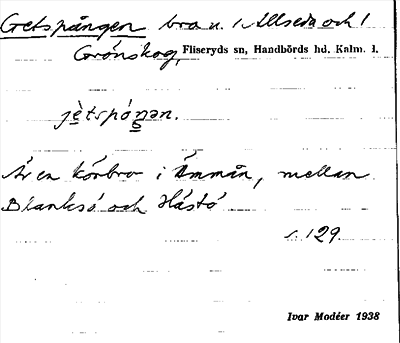 Getspången bro u. 1 Allseda och 1
Grönskog, Fliseryds sn, Handbörds hd. Kalm. l.
jètspóŋən.
Är en körbro i Ämmån, mellan
Blanksö och Hästö
s. 129.
Ivar Modéer 1938